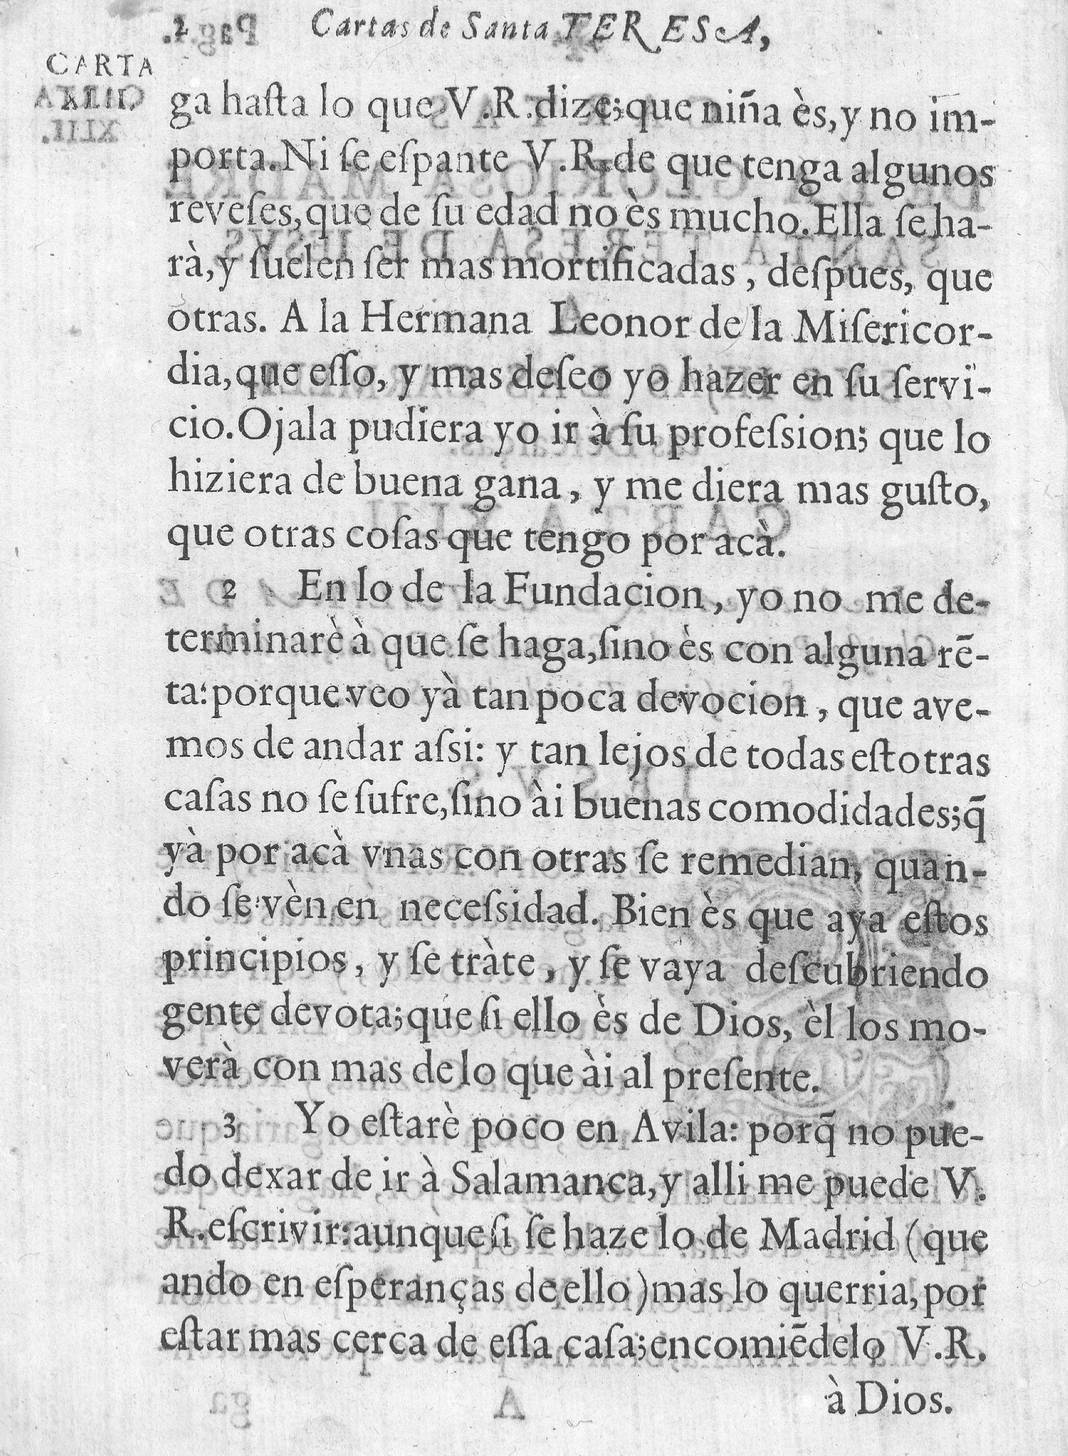 Cartas de Santa TERESA,
CARTA
ga haſta lo que V.R. dize; que niña ès, y no im-
porta. Ni ſe eſpante V.R. de que tenga algunos
reveſes, que de ſu edad no ès mucho. Ella ſe ha-
rà, y ſuelen ſer mas mortificadas, deſpues, que
otras. A la Hermana Leonor de la Miſericor-
dia, que eſſo, y mas deſeo yo hazer en ſu ſervi-
cio. Ojala pudiera yo ir à ſu profeſsion; que lo
hiziera de buena gana, y me diera mas guſto,
que otras coſas que tengo por acà.
2 En lo de la Fundacion, yo no me de-
terminarè à que ſe haga, ſino ès con alguna rẽ-
ta: porque veo yà tan poca devocion, que ave-
mos de andar aſsi: y tan lejos de todas eſtotras
caſas no ſe ſufre, ſino ài buenas comodidades; q̃
yà por acà vnas con otras ſe remedian, quan-
do ſe vèn en neceſsidad. Bien ès que aya eſtos
principios, y ſe tràte, y ſe vaya deſcubriendo
gente devota; que ſi ello ès de Dios, èl los mo-
verà con mas de lo que ài al preſente.
3 Yo eſtarè poco en Avila: porq̃ no pue-
do dexar de ir à Salamanca, y alli me puede V.
R. eſcrivir: aunque ſi ſe haze lo de Madrid (que
ando en eſperanças de ello) mas lo querria, por
eſtar mas cerca de eſſa caſa; encomiẽdelo V.R.
à Dios.